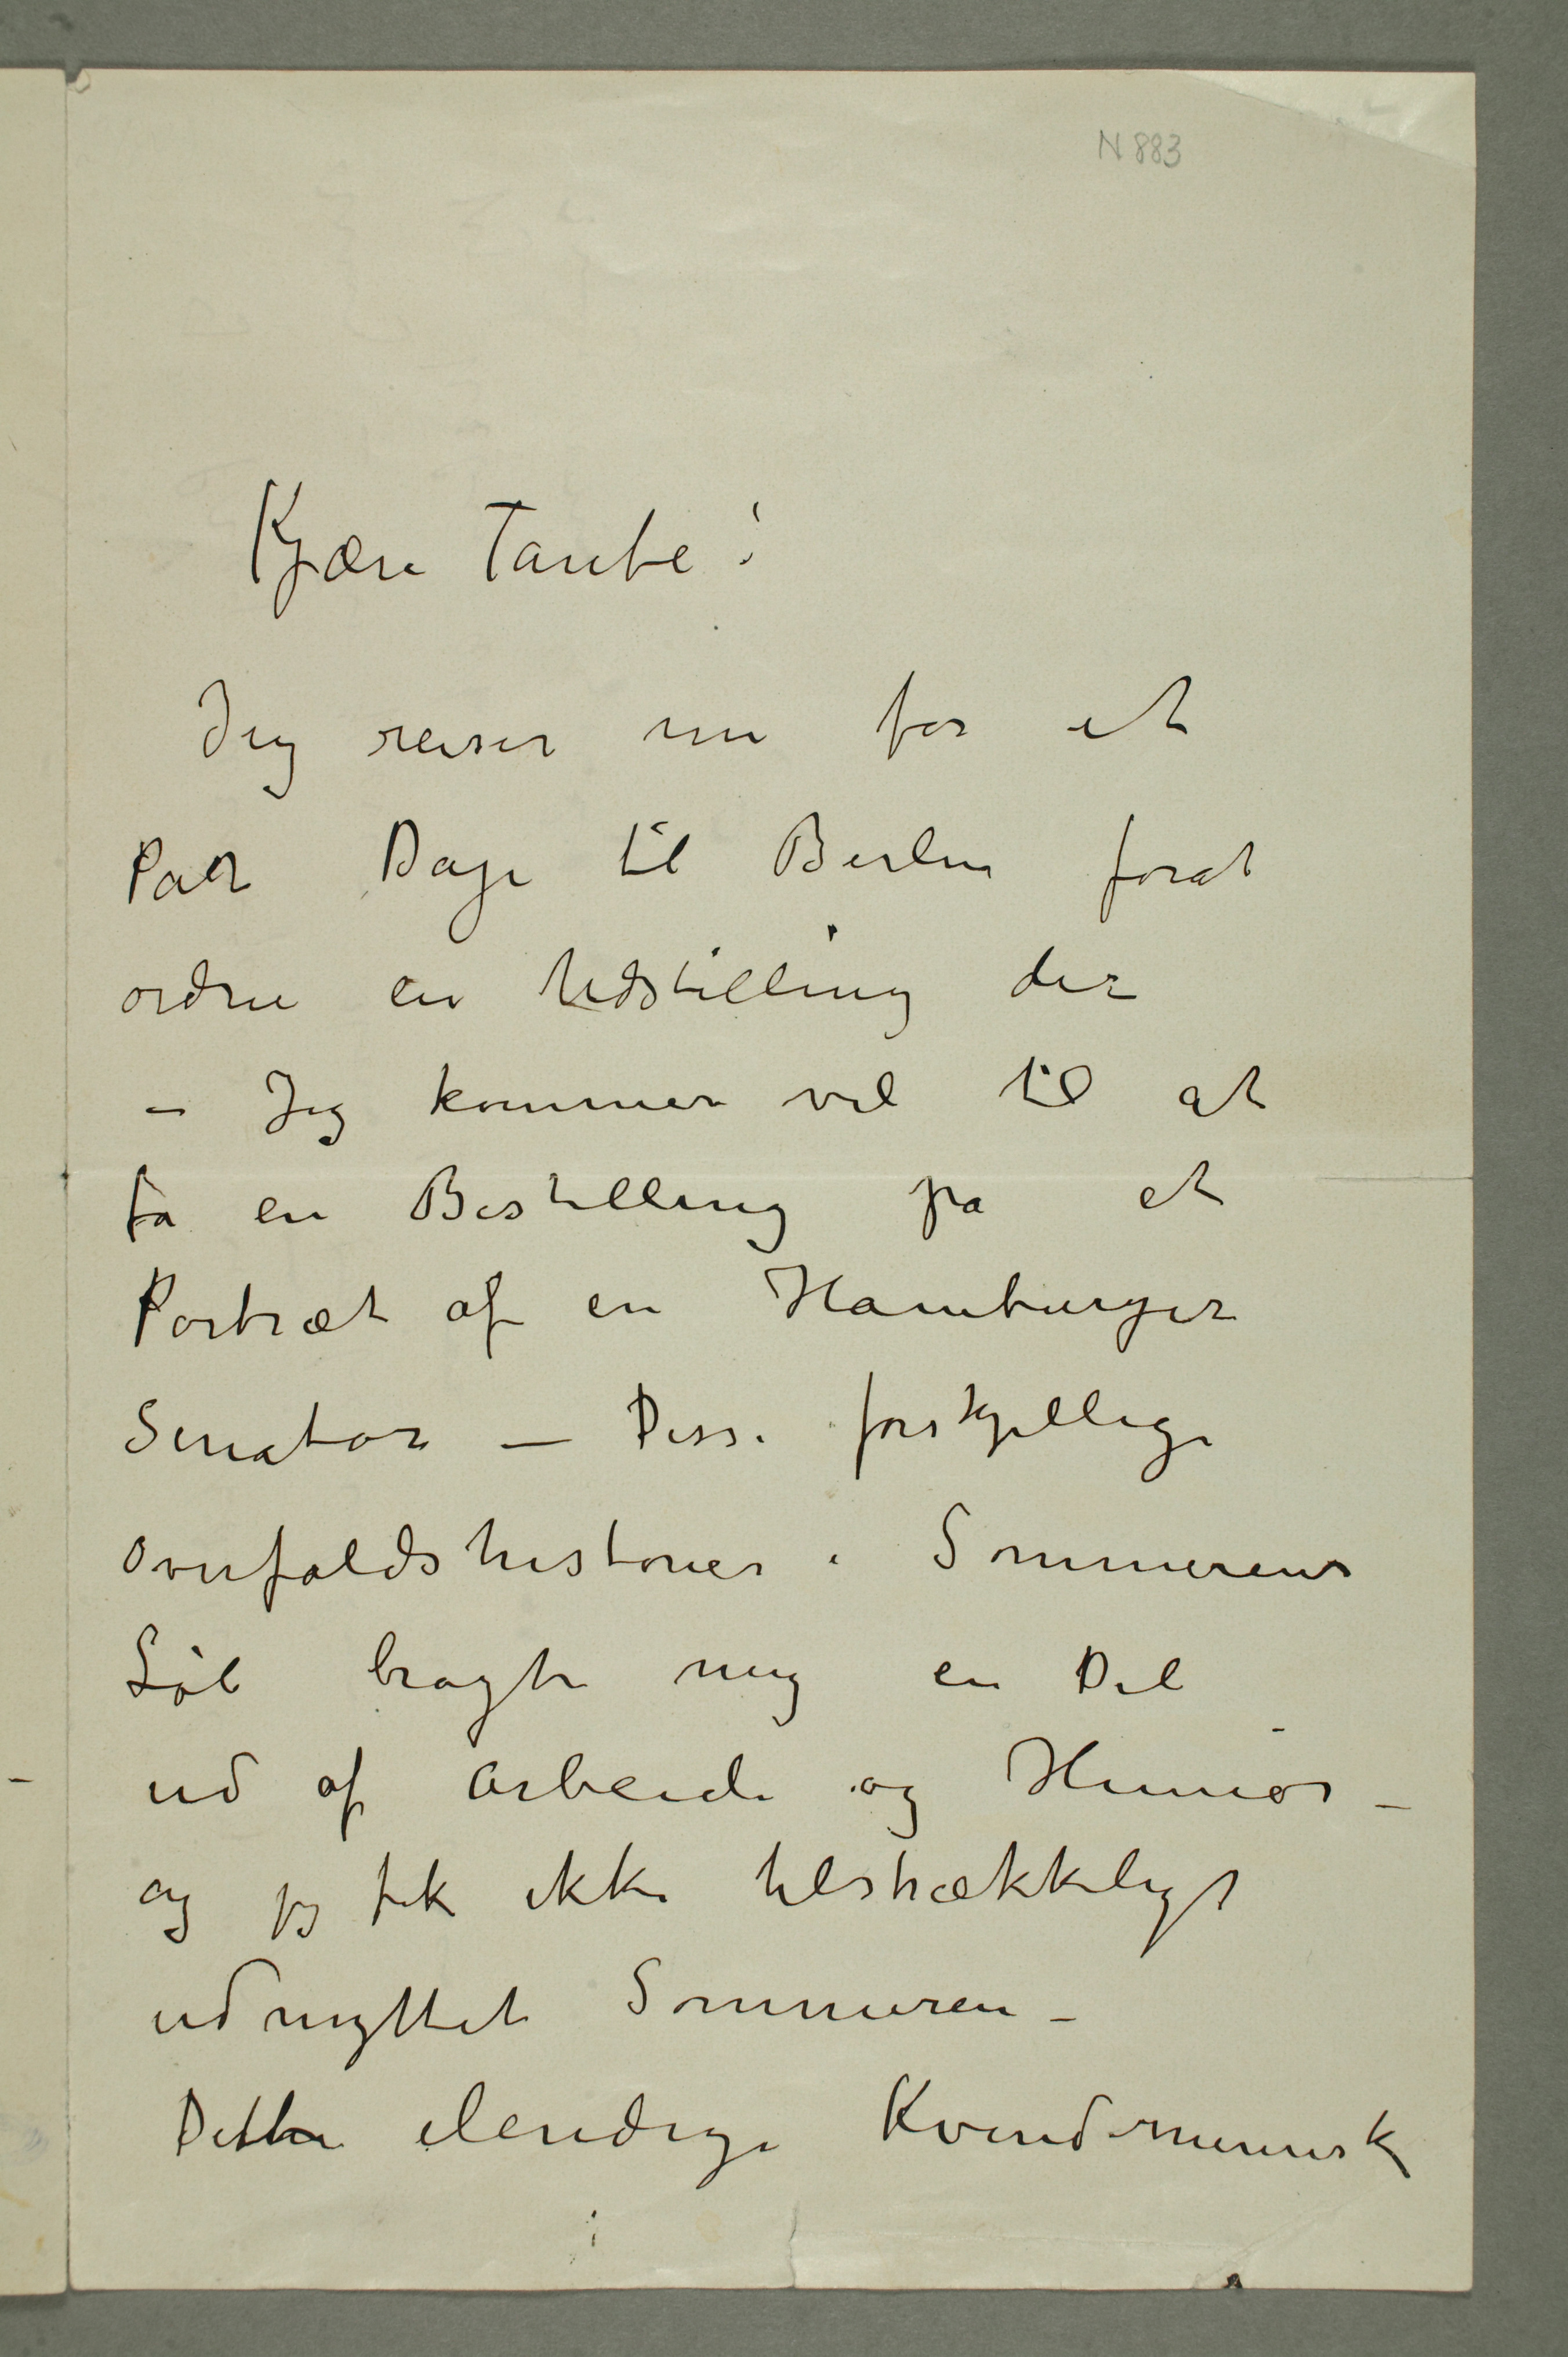 N 883
Kjære Tante!
Jeg reiser nu for et
Par Dage til Berlin forat
ordne en Udstilling der
– Jeg kommer vel til at
få en Bestilling på et
Portræt af en Hamburger
Senator – Disse forskjellige
Overfaldshistorier i Sommerens
Løb bragte mig en Del
ud af Arbeide og Humør –
og jeg fik ikke tilstrækkeligt
udnyttet Sommeren –
Dette elendige Kvindemenneske